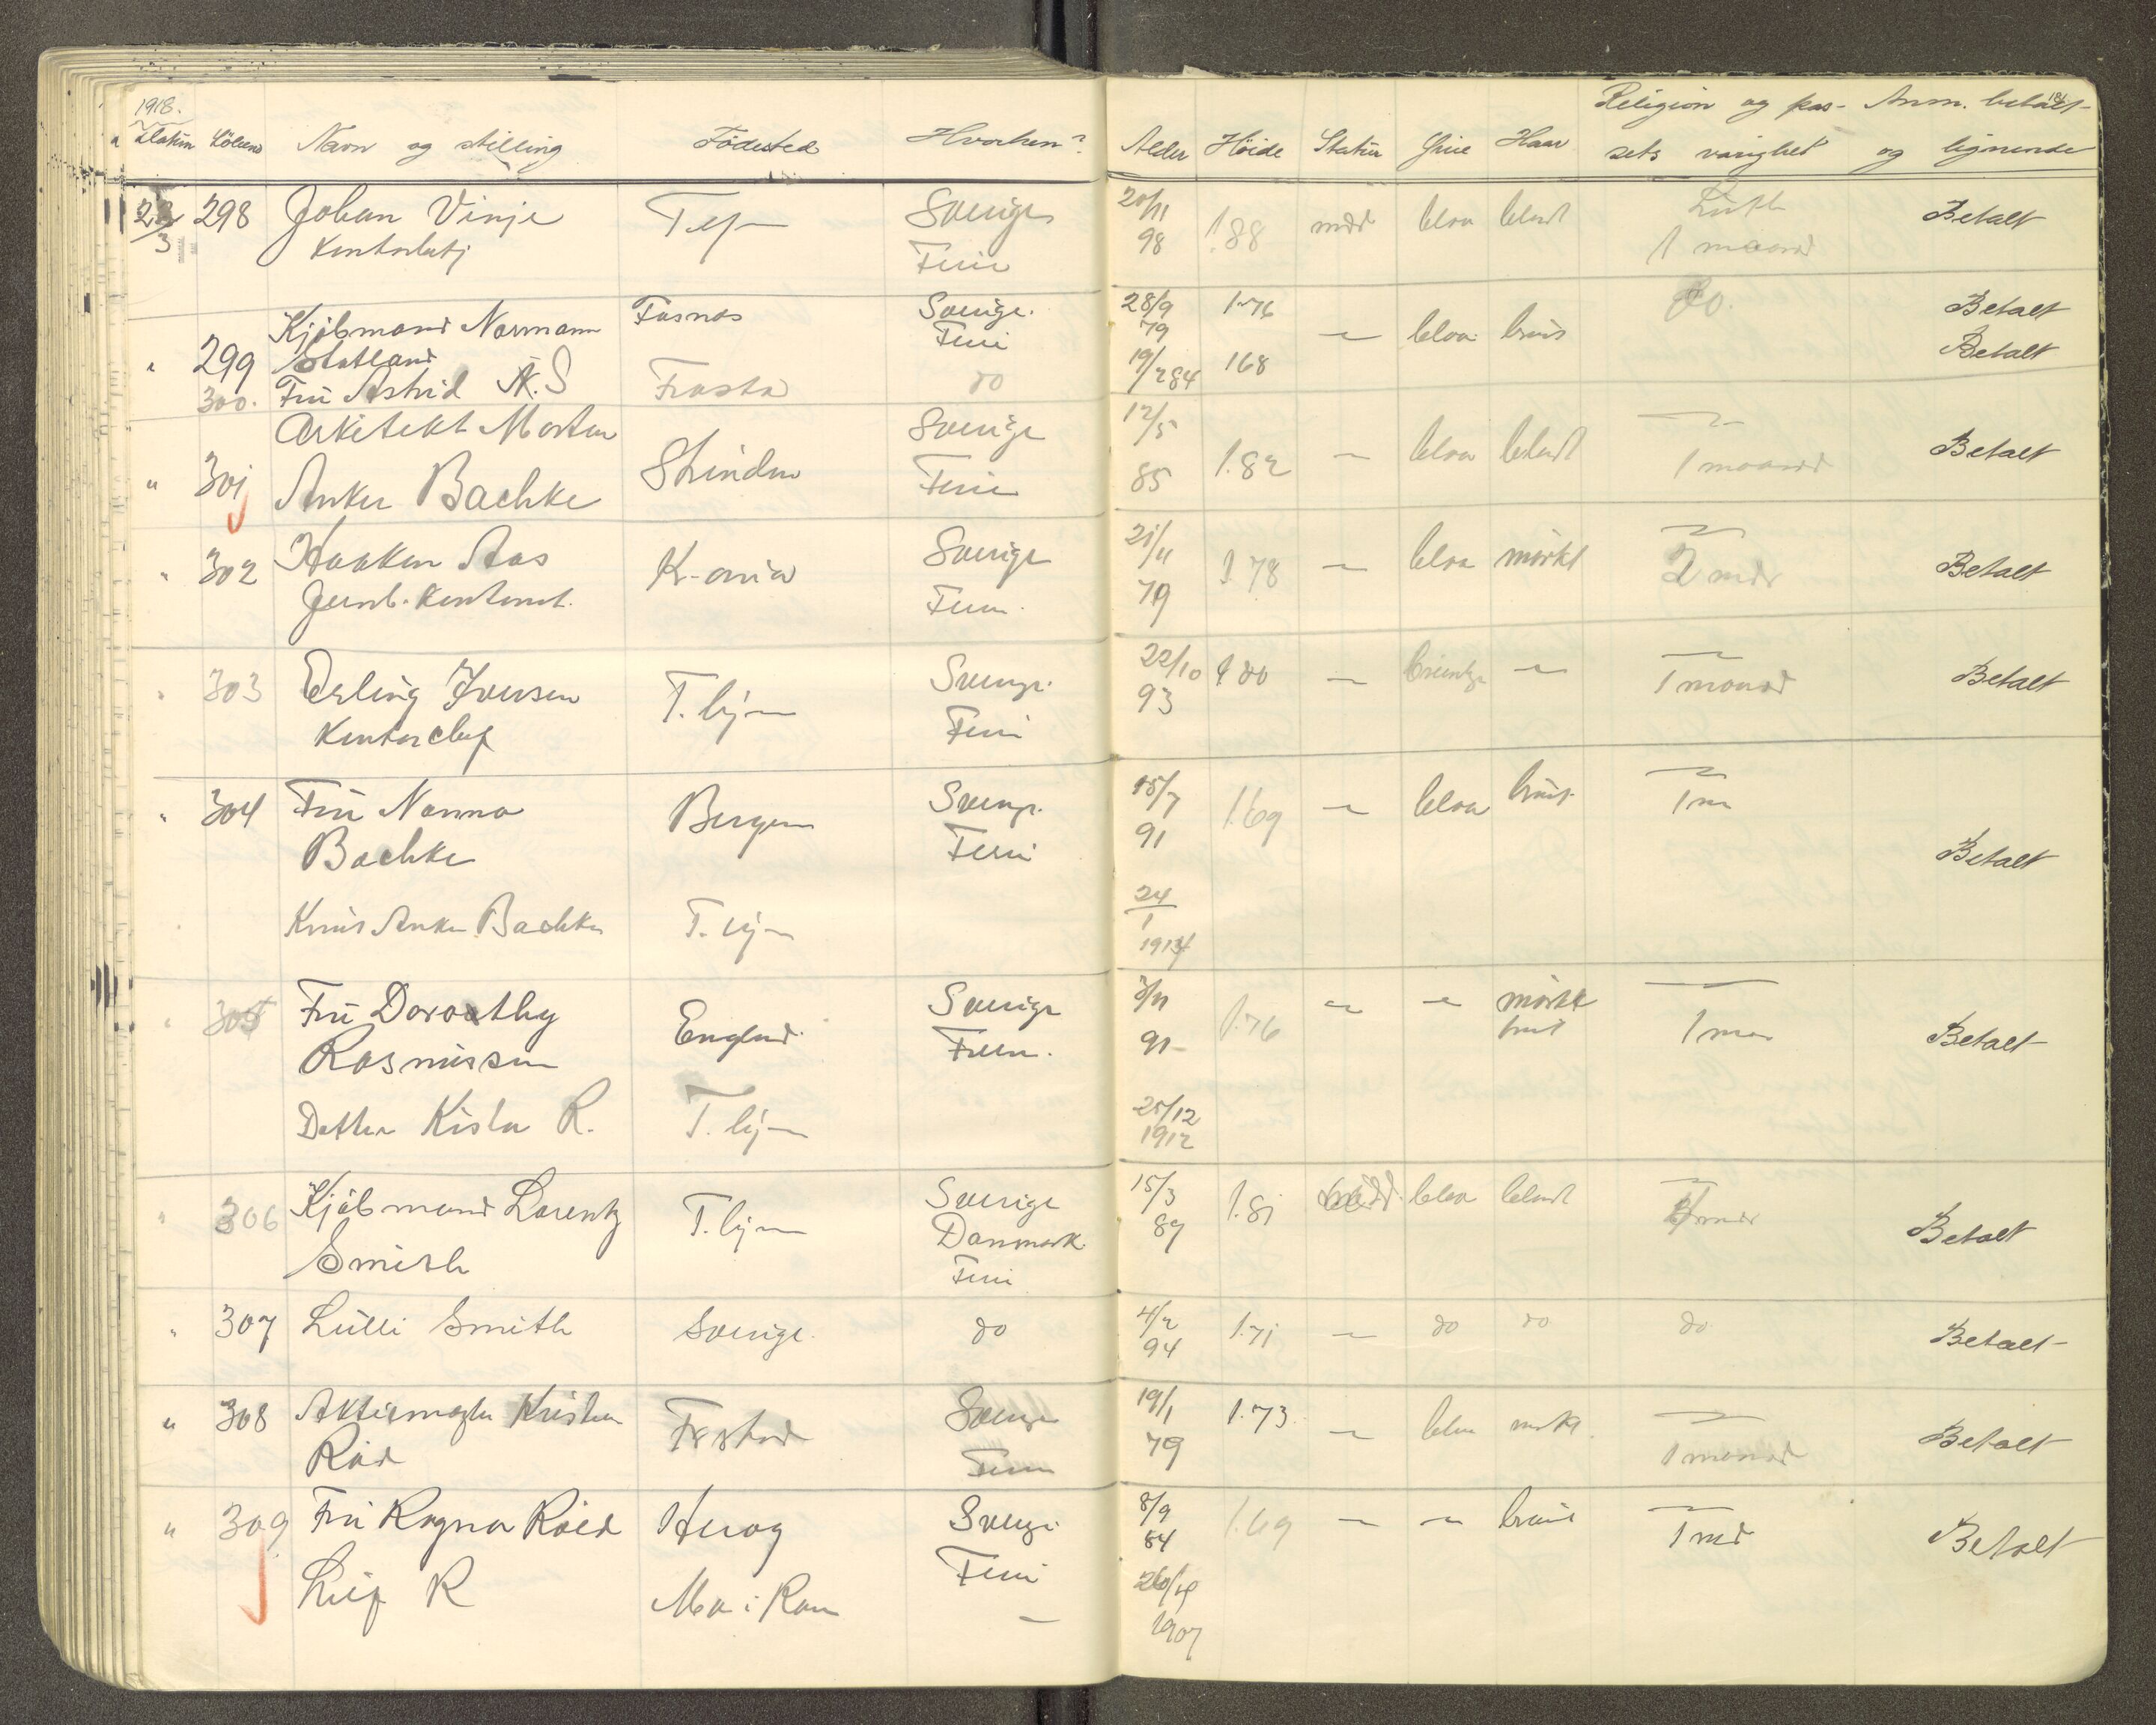 1918.
Datum Löbeno Navn og stilling Födested Hvorhen? Alder Höide Statur Öine Haar Religion og pas- Anm. betalt- 181
sets varighet og lignende
23/3 298 Johan Vinje Sverige 20/11 1.88 midd blaa blond Luth Betalt
Kontorbetj Ferie 98 1 maaned
" 299 Kjöbmand Normann Fosnes Sverige. 28/9 1.76 — blaa brunt do. Betalt
Statland Ferie 79
300. Fru Astrid N. S Frosta do 19/2 84 168 Betalt
Arkitekt Morten Sverige 12/5 — blaa blondt —
" 301 Anker Bachke Strinden Ferie 85 1.82 1 maaned Betalt
" 302 Haakon Aas K-ania Sverige 21/11 1.78 — blaa mörkt — Betalt
Jernb. Kontorist. Ferie. 79 2 mdr
" 303 Erling Iversen T.hjem Sverige. 22/10 1.80 — brunlige — — Betalt
Kontorchef Ferie 93 1 maaned
" 304 Fru Nanna Bergen Sverige. 15/7 1.69 — blaa brunt. —
Bachke Ferie 91 1 m Betalt
Knut Anker Bachke T.hjem 24/1
1914
" 305 Fru Dorothy England. Sverige 3/11 1.76 — — mörkt —
Rasmussen Ferie. 91 brunt 1 maa Betalt
Datter Kisten R. T.hjem 25/12
1912
" 306 Kjöbmand Lorentz T.hjem Sverige 15/3 1.81 midd. blaa blondt —
Smith Danmark. 89 mdr Betalt
Ferie
" 307 Lulli Smith Sverige. do 4/2 1.71 — do do do Betalt
94
" 308 Aktiemægler Kristen Fr.stad Sverige 19/1 1.73. — blaa mörkt. —
Röd Ferie 79 1 maaned Betalt
" 309 Fru Ragna Röed Heröy Sverige. 8/9 1.69 — — brunt — Betalt
Ferie 84 1 md
Leif R Mo i Rana — 26/10
1907